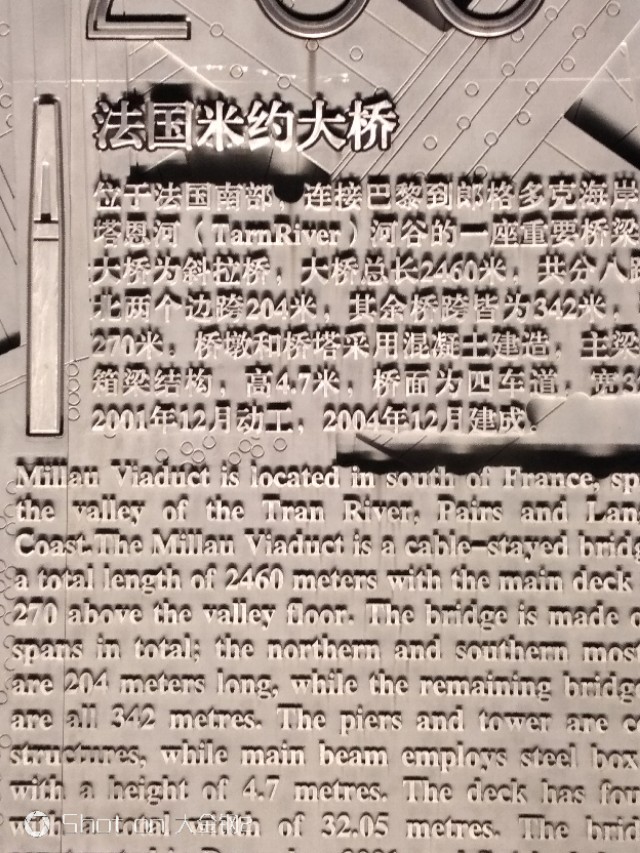 200
法国米约大桥
位于法国南部，连接巴黎到郎格多克海岸
塔恩河（TarnRiver）河谷的一座重要桥梁
大桥为斜拉桥，大桥总长2460米，共分八跨
北两个边跨204米，其余桥跨皆为342米，
270米。桥墩和桥塔采用混凝土建造，主梁
箱梁结构，高4.7米，桥面为四车道，宽3
2001年12月动工，2004年12月建成。
Millau Viaduct is located in south of France, sp
the valley of the Tran River, Pairs and Lan
Coast.The Millau Viaduct is a cable-stayed bridg
a total length of 2460 meters with the main deck
270 above the valley floor. The bridge is made o
spans in total; the northern and southern most
are 204 meters long, while the remaining bridg
are all 342 metres. The piers and tower are c
structures, while main beam employs steel box
with a height of 4.7 metres. The deck has fou
with total of 32.05 metres. The brid
Shot on 大金刚